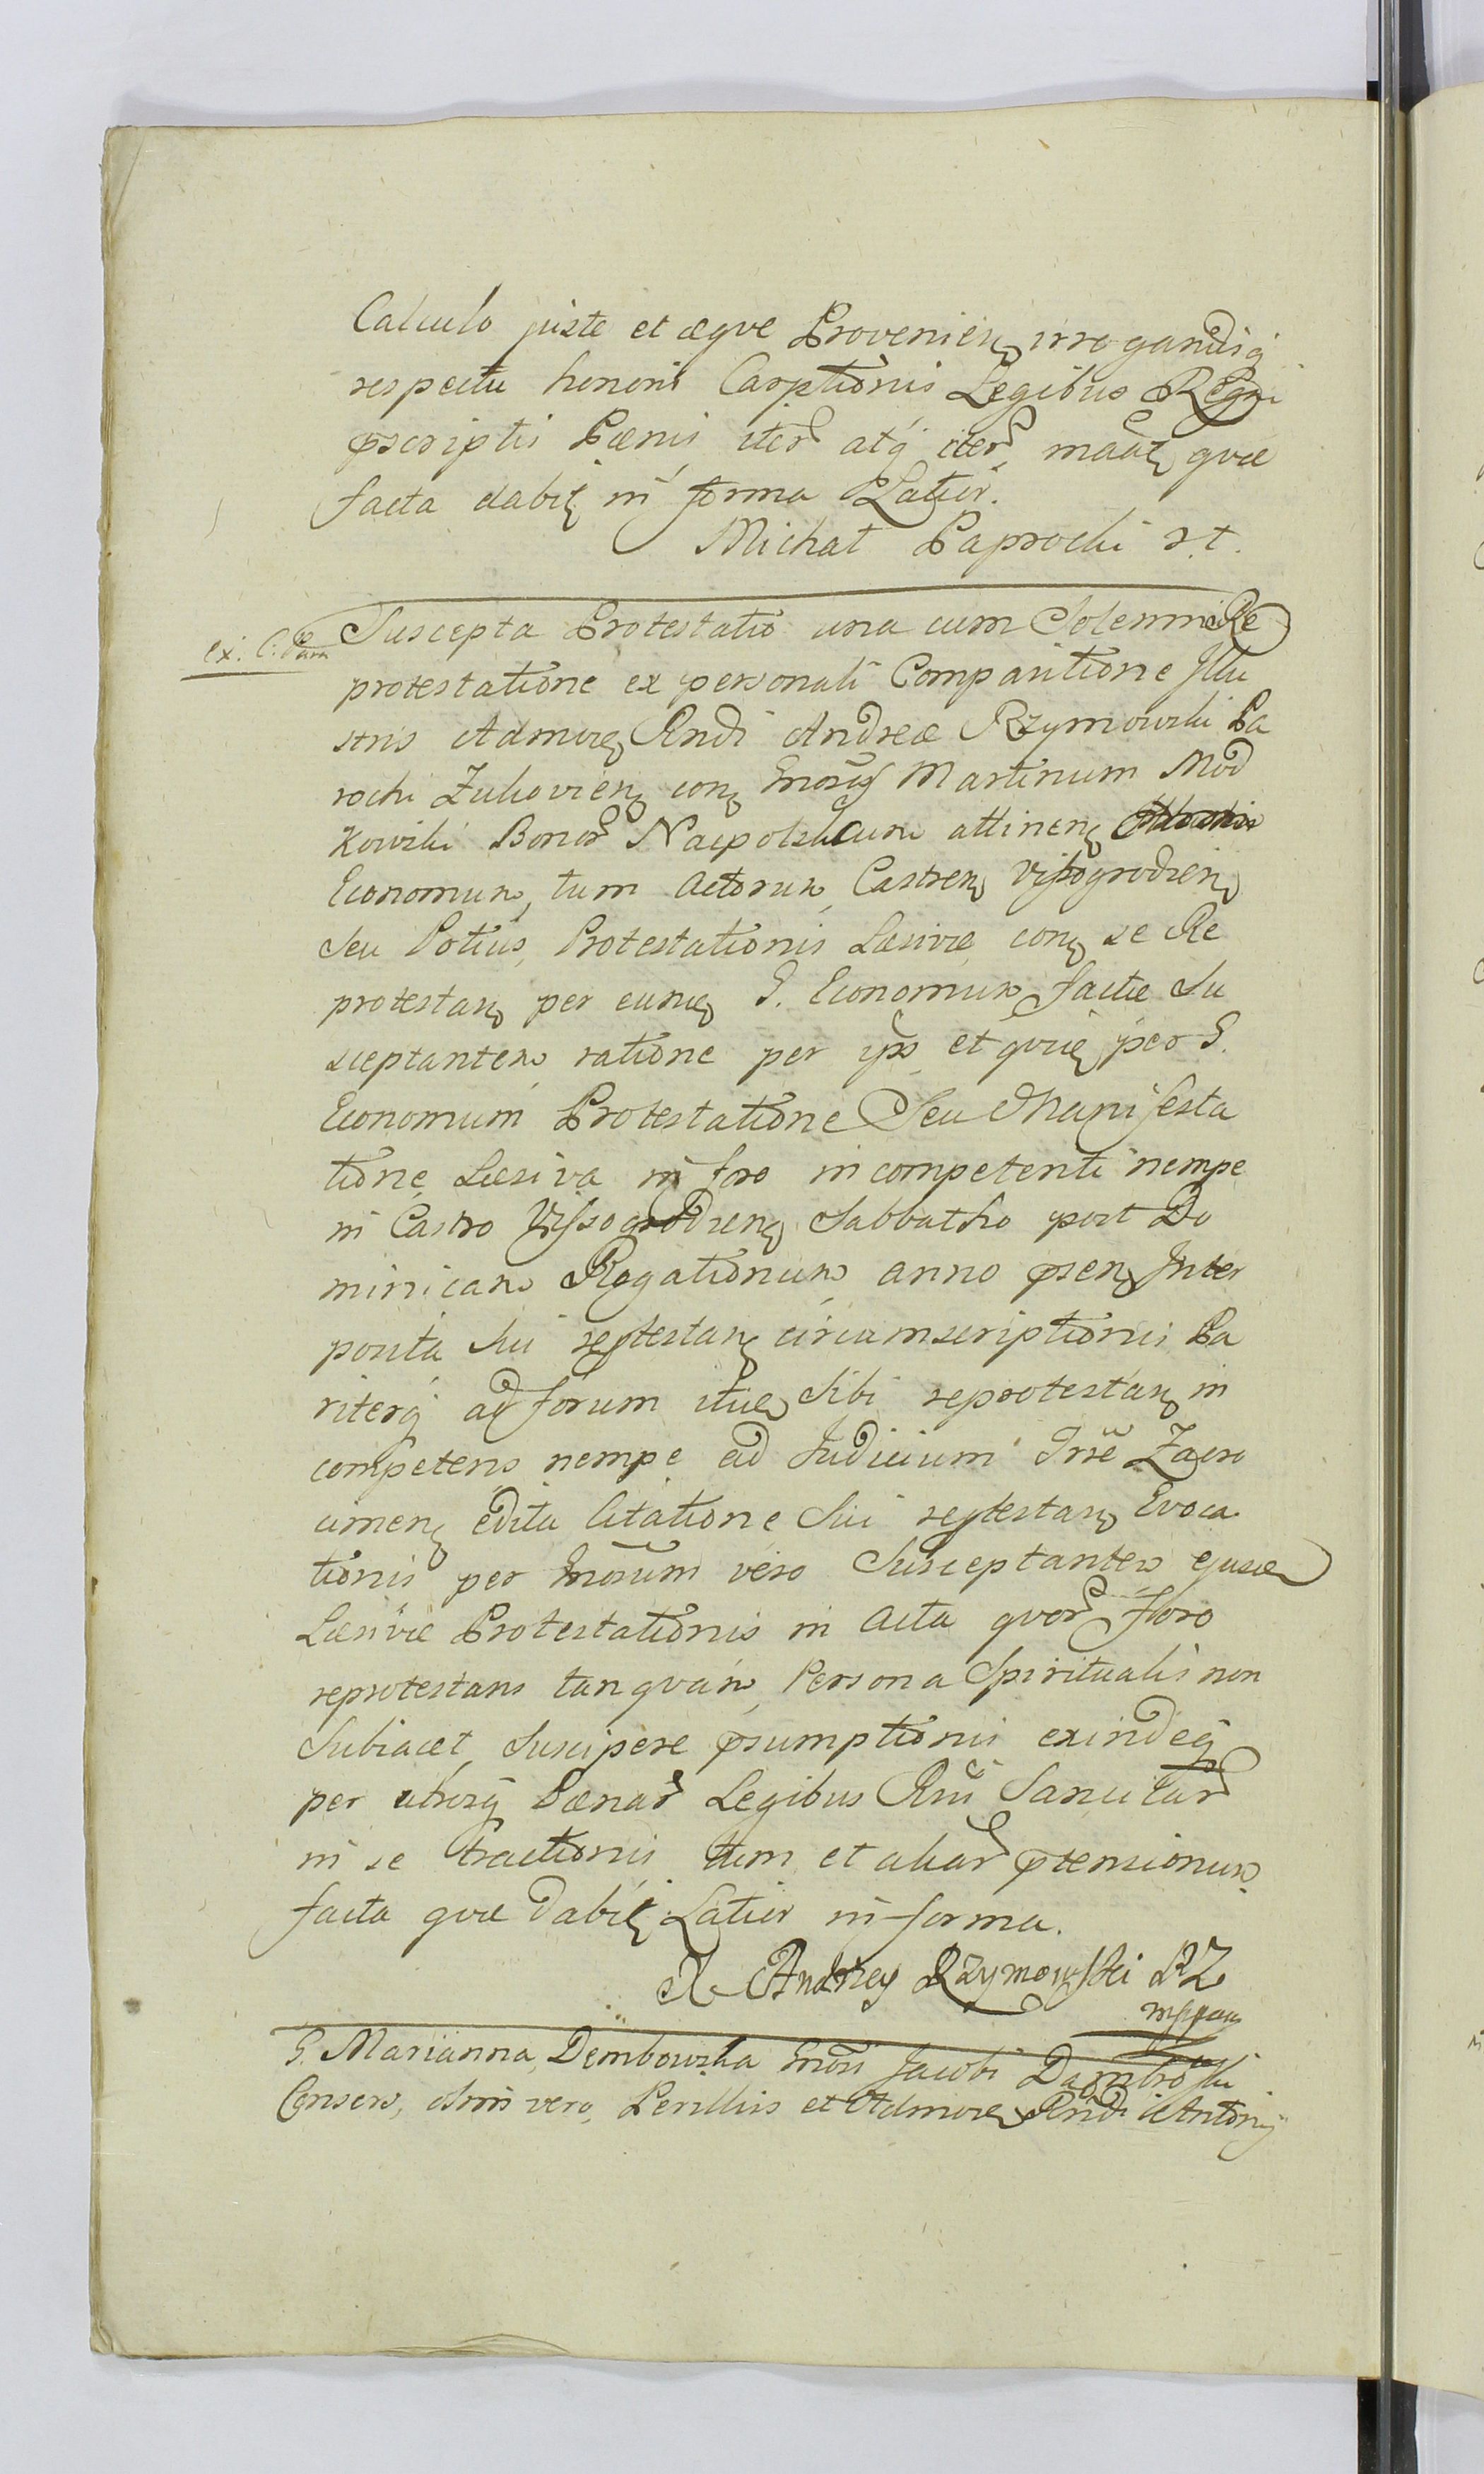 Calculo juste et aeqve Provenien irrogandiq
respectu honoris Carptionis Legibus Regni
pscriptis Paenis iter atq iter maat qvae
facta dabit in forma Latior.
Michał Paprocki r.t.
Suscepta Protestatio una cum Solemni Re
ex. C. Para
protestatione ex personali Comparitione Illu
stris Admod Rndi Andreae Rzymowski Pa
rochi Zukovien con Gnosum Martinum Mod
kowski Bonor Nacpolsk cum attinen
Economum, tum Actorum Castren Vissogrodien
Seu Potius Protestationis Laesivae con se Re
protestan per eund G. Economum factae Su
sceptantem ratione per ips et qvid per G.
Economum Protestatione Seu Manifesta
tione Laesiva in foro incompetenti nempe
in Castro Vissogrodien Sabbatho post Do
minicam Rogationum anno psen Inter
posita Sui reptestan circumscriptionis Pa
riterq ad forum itid Sibi reprotestan in
competens nempe ad Judicium Trre Zacro
cimen edita Citatione Sui reptestan Evoca
tionis per Gnosum vero Susceptantem ejusd
Laesivae Protestationis in Acta qvor Foro
reprotestans tanqvam Persona Spiritualis non
Subiacet Suscipere psumptionis exindeq
per utrosq Paenar Legibus Rni Sancitar
in se tractionis tum et aliar ptensionum
facta qvae dabit Latior in forma.
X Andrzey Rzymowski PZ
mppria
G. Marianna Dembowska Gnosi Jacobi Dąmbroski
Consors, olim vero Perillris et Admod Rndi Antonij